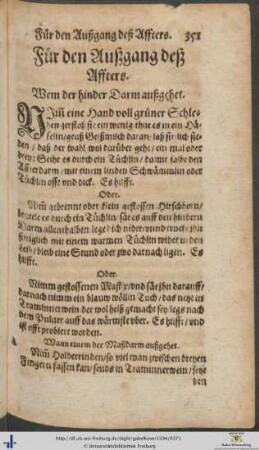 Für den Außgang deß Affters. 351
Für den Außgang deß
Affters.
Wem der hinder Darm außgehet.
NIm̃ eine Hand voll grüner Schle-
hen zerstoß sie ein wenig thue es in ein Hä-
felin geuß Geißmilch daran laß sie sich sie-
den / daß der wahl wol darüber geht / ein mal oder
drey: Seihe es durch ein Tüchlin / damit salbe den
Affterdarm / mit einem linden Schwämmlin oder
Tüchlin offt vnd dick. Es hilfft.
Oder.
Nim̃ gebrennt oder klein gestossen Hirschhorn /
beutele es durch ein Tüchlin sae es auff den hindern
Darm allenthalben lege dich nider / vnd truck ihn
sänfftiglich mit einem warmen Tüchlin wider in den
Leib / bleib eine Stund oder zwo darnach ligen. Es
hilfft.
Oder.
Nimm gestossenen Mastix / vnd säe ihn darauff /
darnach nimm ein blauw wöllin Tuch / das netze in
Traminnerwein der wol heiß gemacht sey legs nach
dem Puluer auff das wärmste vber. Es hilfft / vnd
ist offt probiert worden.
Wann einem der Maßdarm außgehet.
Nim̃ Holderrinden / so viel man zwischen dreyen
Fingern fassen kan / seuds in Traminnerwein / setze
den
http://dl.ub.uni-freiburg.de/diglit/gabelkover1594/0371
© Universitätsbibliothek Freiburg